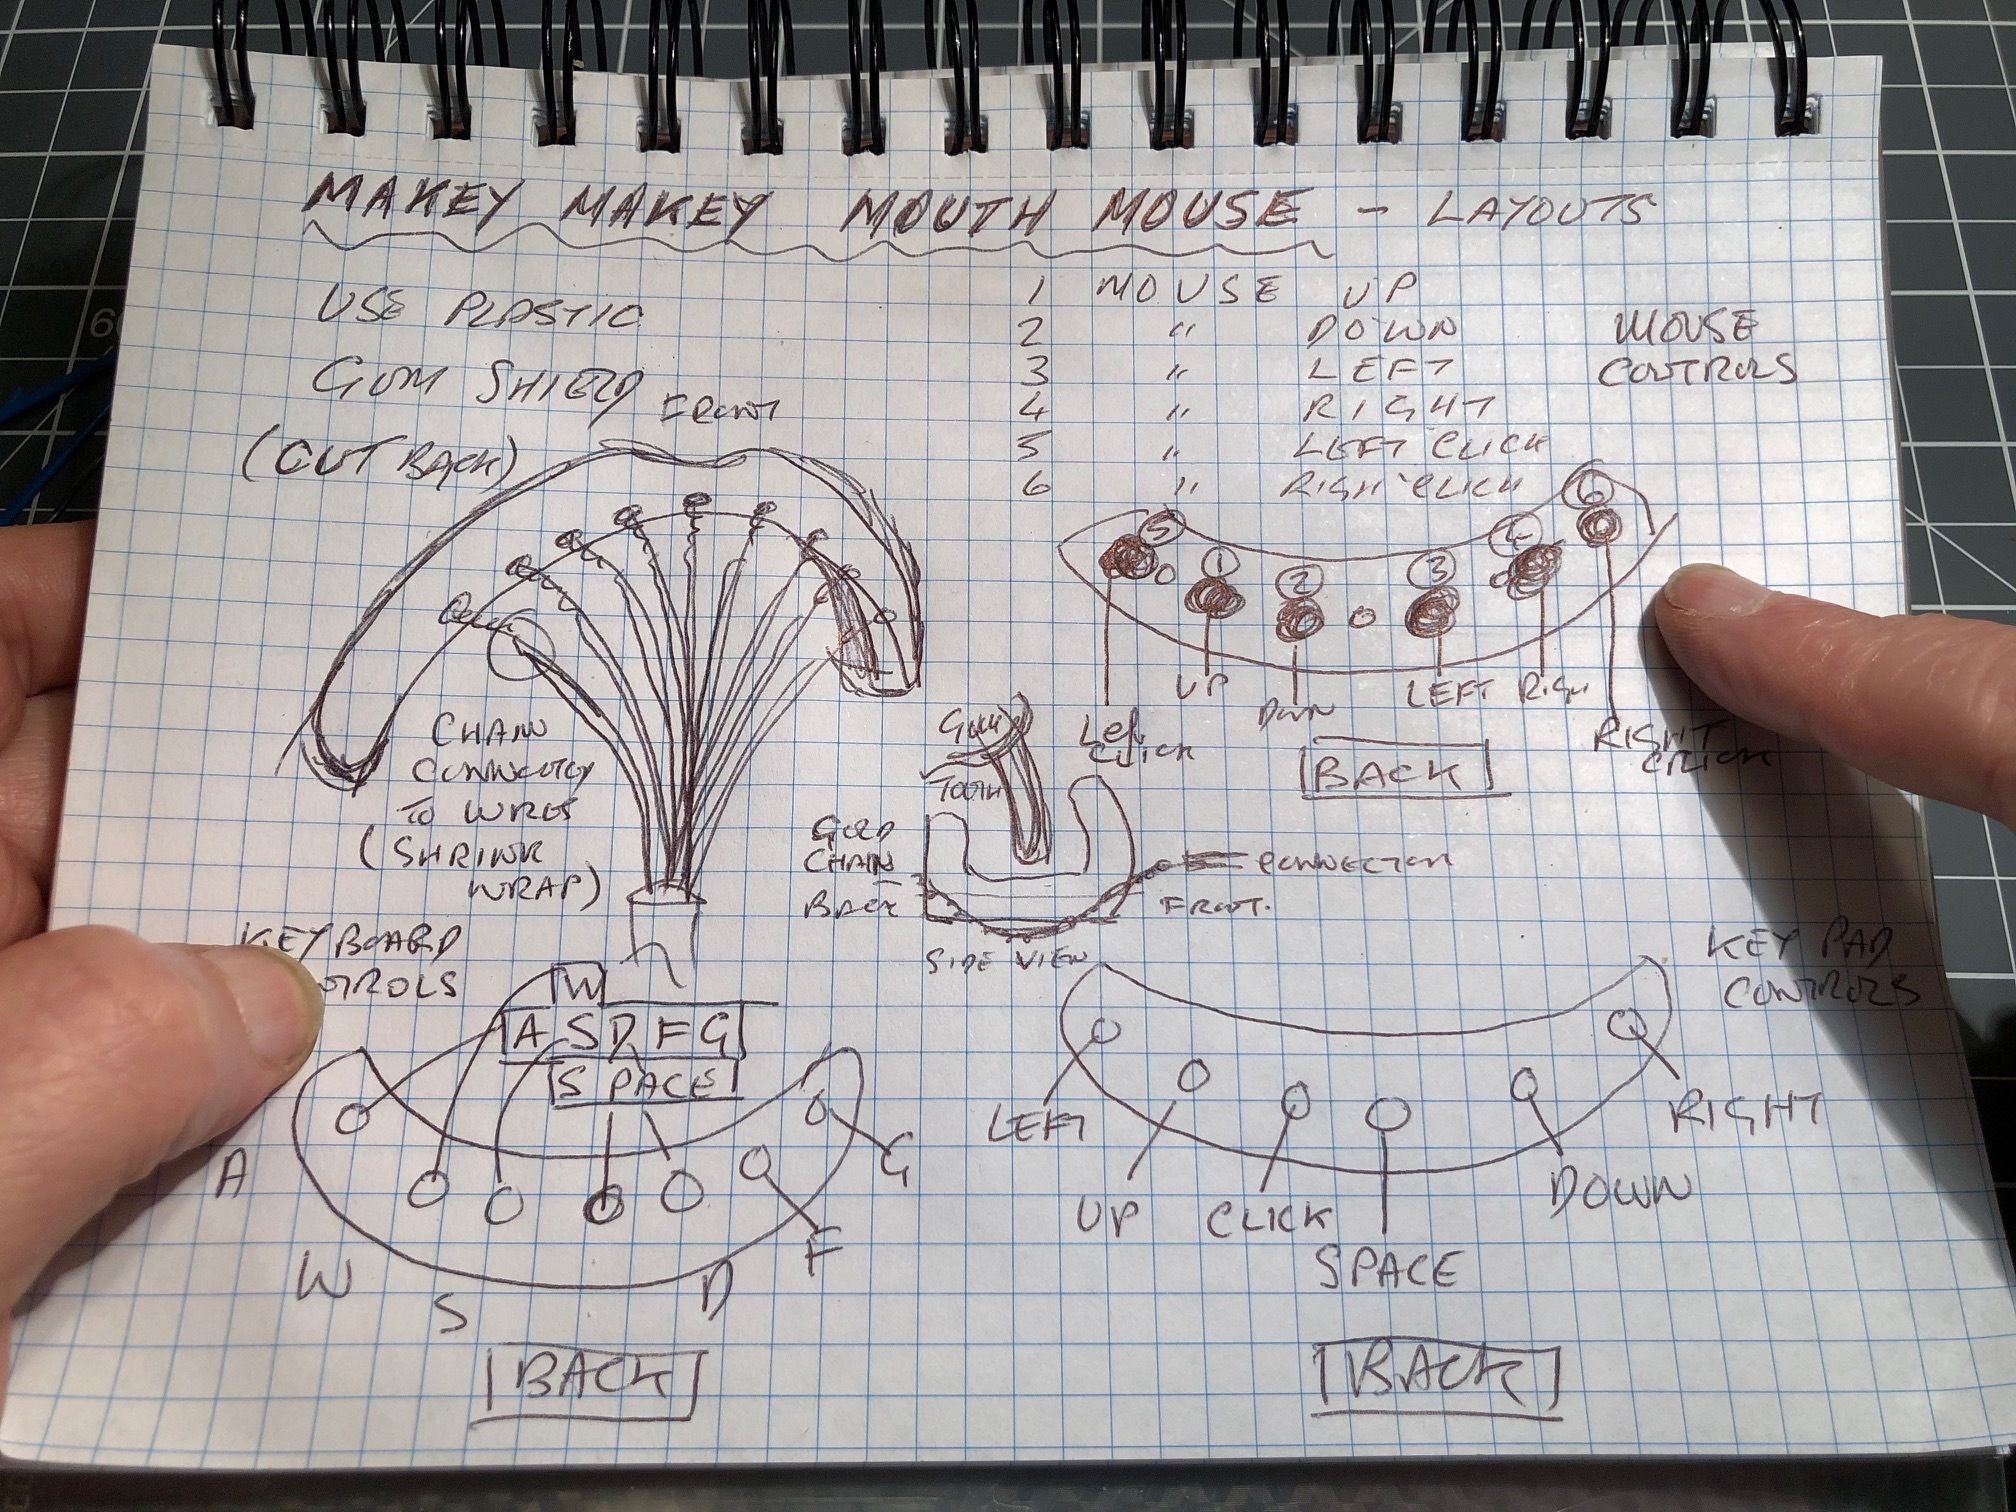 MAKEY MAKEY MOUTH MOUSE - LAYOUTS
USE PLASTIC
GUM SHIELD
(CUT BACK)
FRONT
1 MOUSE UP
2 " DOWN
3 " LEFT
4 " RIGHT
5 " LEFT CLICK
6 " RIGHT CLICK
MOUSE
CONTROLS
5
1
2
3
4
6
UP
DOWN
LEFT
LEFT
CLICK
RIGHT
CLICK
BACK
CHAIN
TO WIRES
(SHRINK
WRAP)
TOOTH
GOLD
CHAIN
BACK
CONNECTION
FRONT.
SIDE VIEW
KEYBOARD
W
A S D F G
SPACE
A
W
S
D
F
G
BACK
KEY PAD
CONTROLS
LEFT
UP
CLICK
SPACE
DOWN
RIGHT
BACK